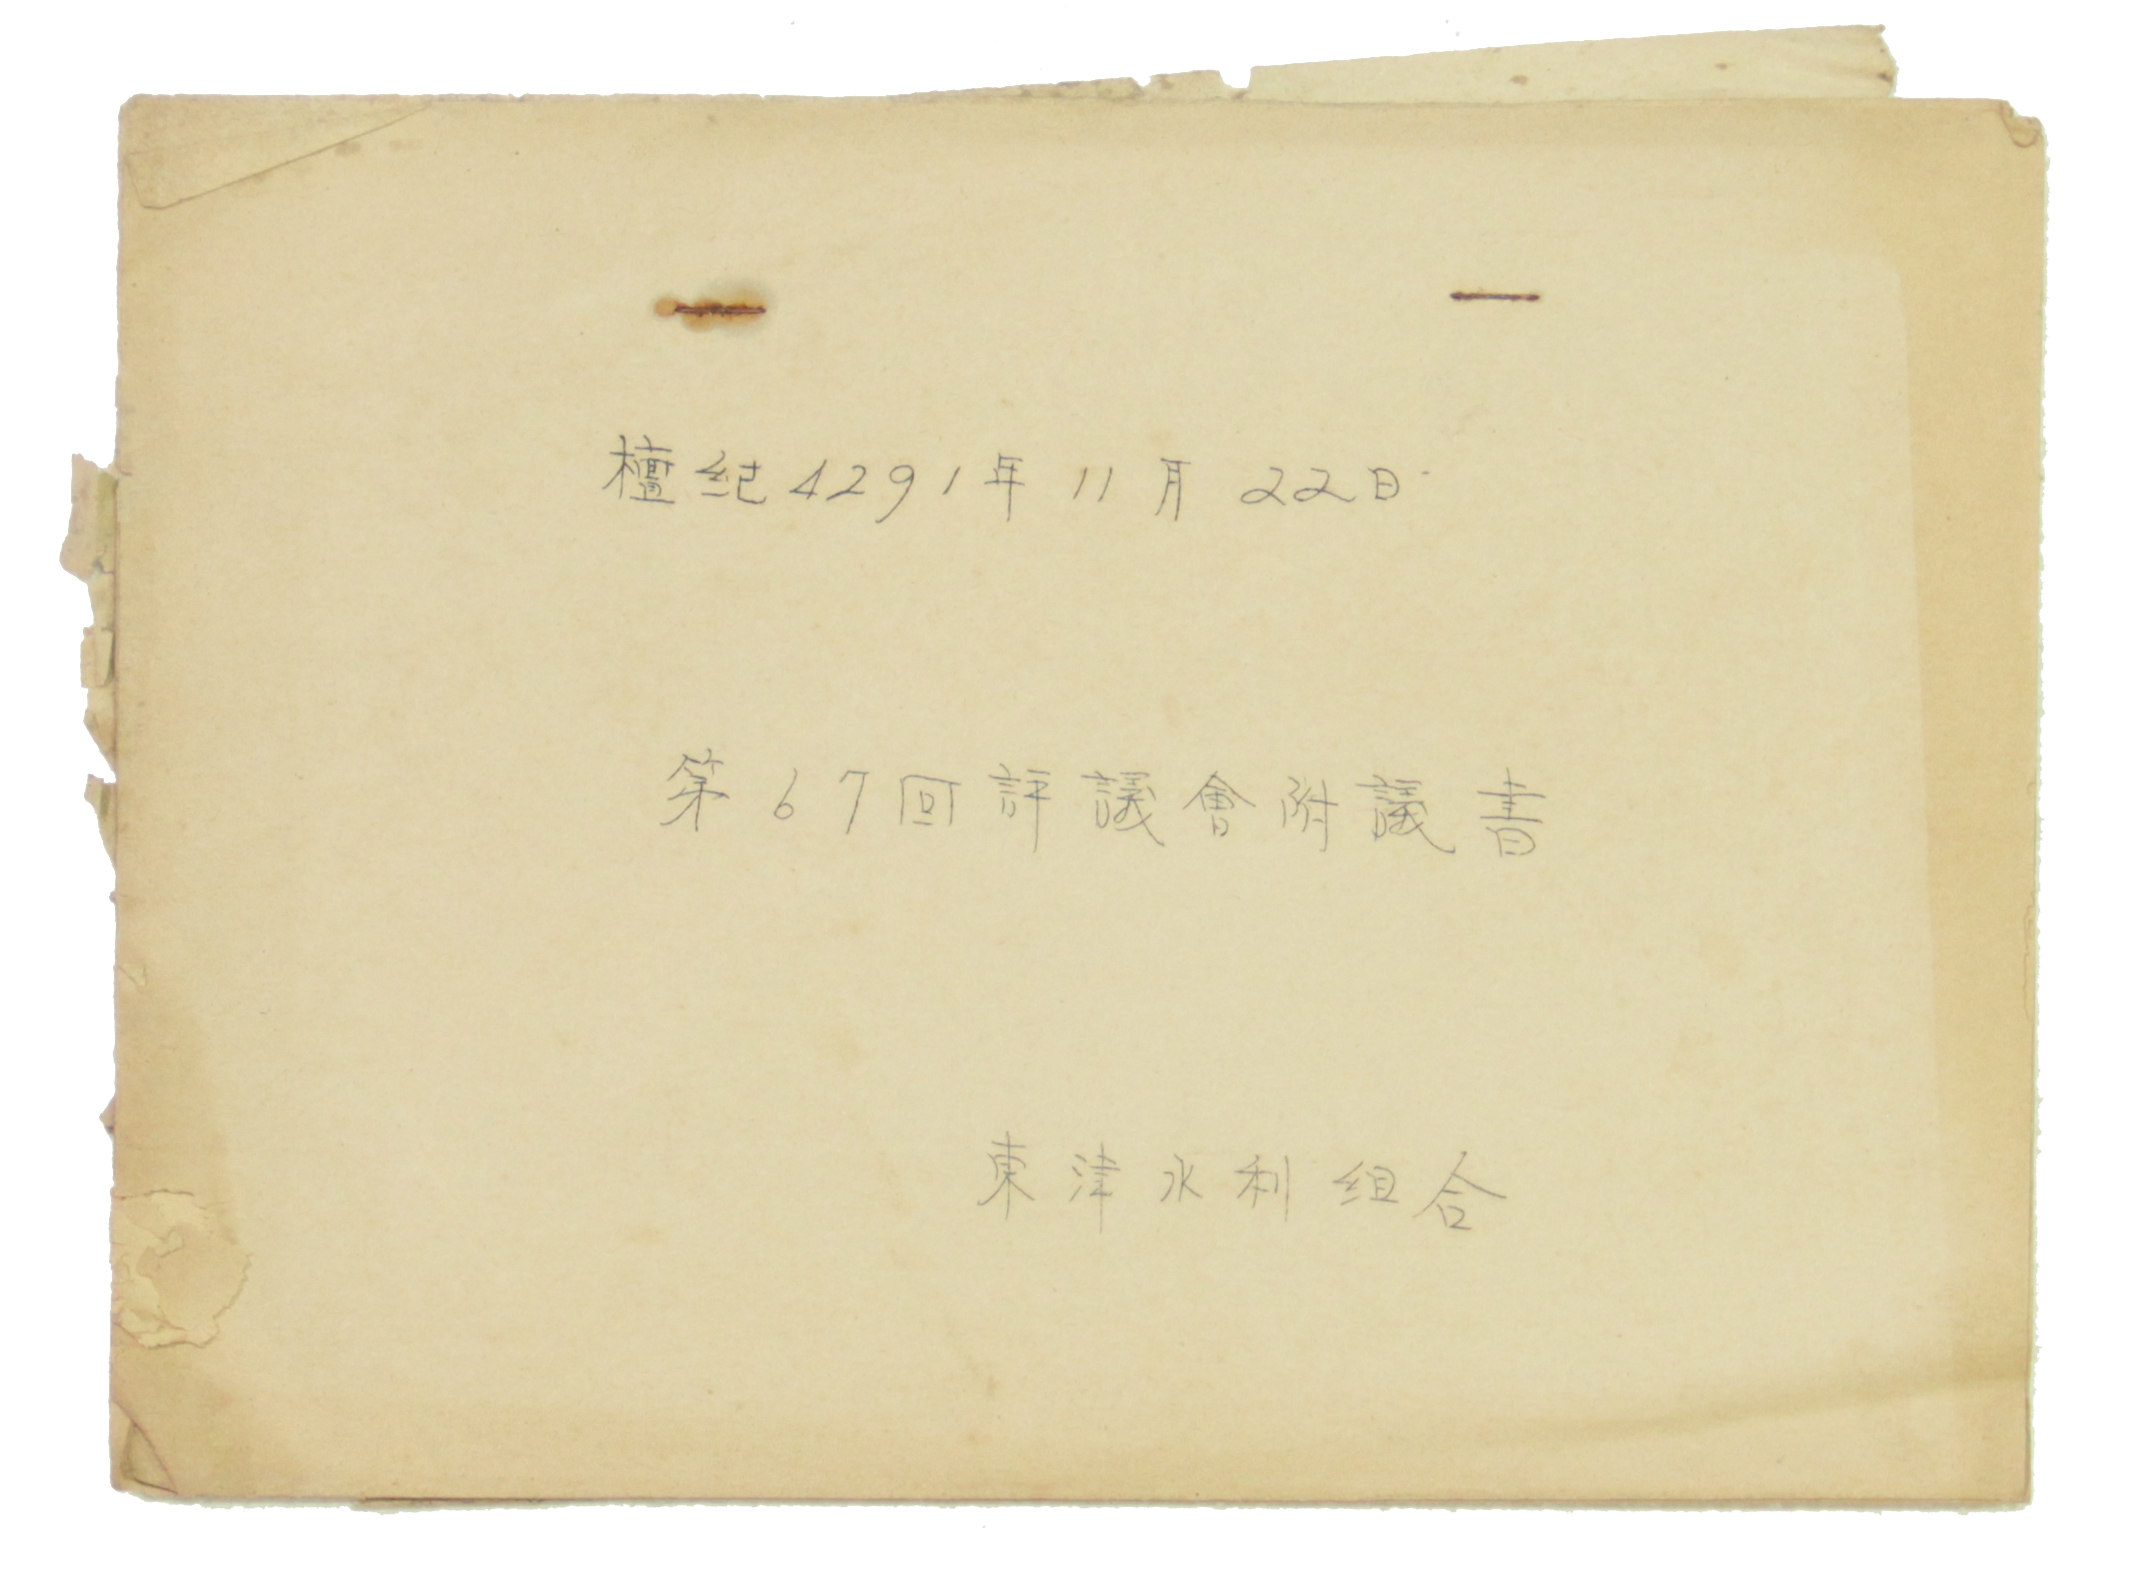 檀紀4291年11月22日
第67回評議會附議書
東津水利組合